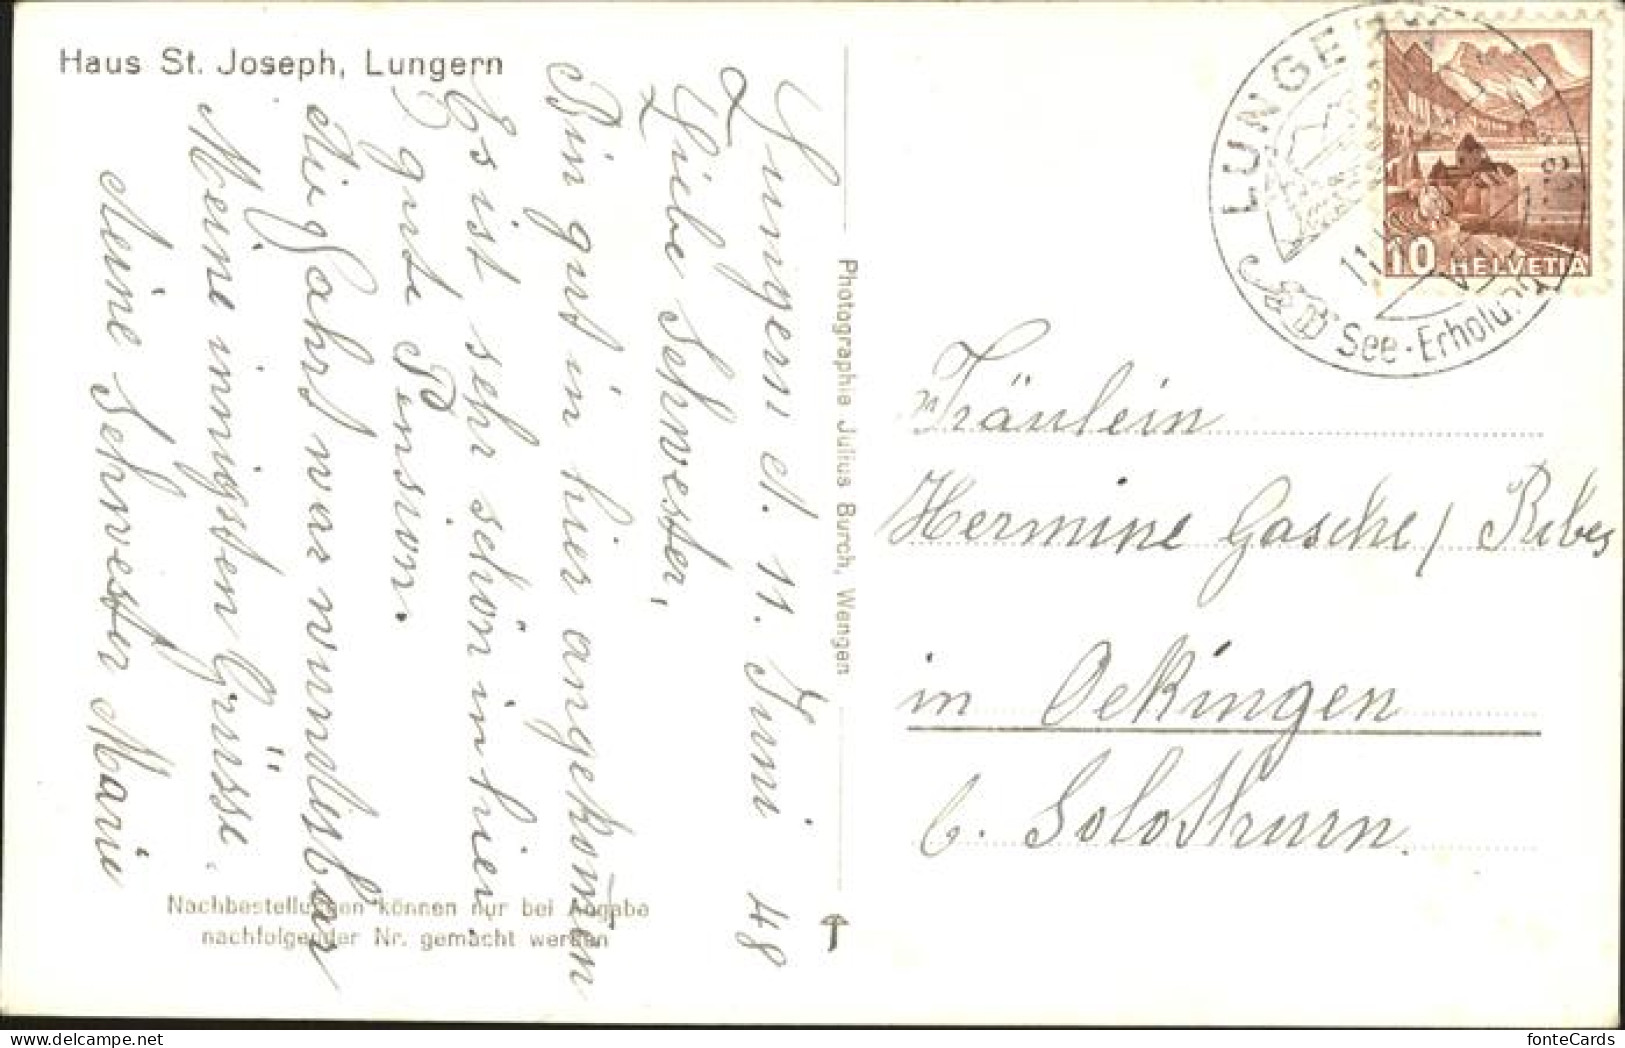 Haus St. Joseph, Lungern
Lungern d. 11. Juni 48
Liebe Schwester,
Bin gut in hier angekom̄en
Es ist sehr schön in hier.
gute Pension.
die Fahrt war wunderbar
Meine innigsten Grüsse.
deine Schwester Marie
Nachbestellungen können nur bei Angabe
nachfolgender Nr. gemacht werden
Photographie Julius Burch, Wengen
LUNGERN
See-Erholung
10 HELVETIA
Fräulein
Hermine Gasche / Ribes
in Oekingen
b. Solothurn.
fonteCards